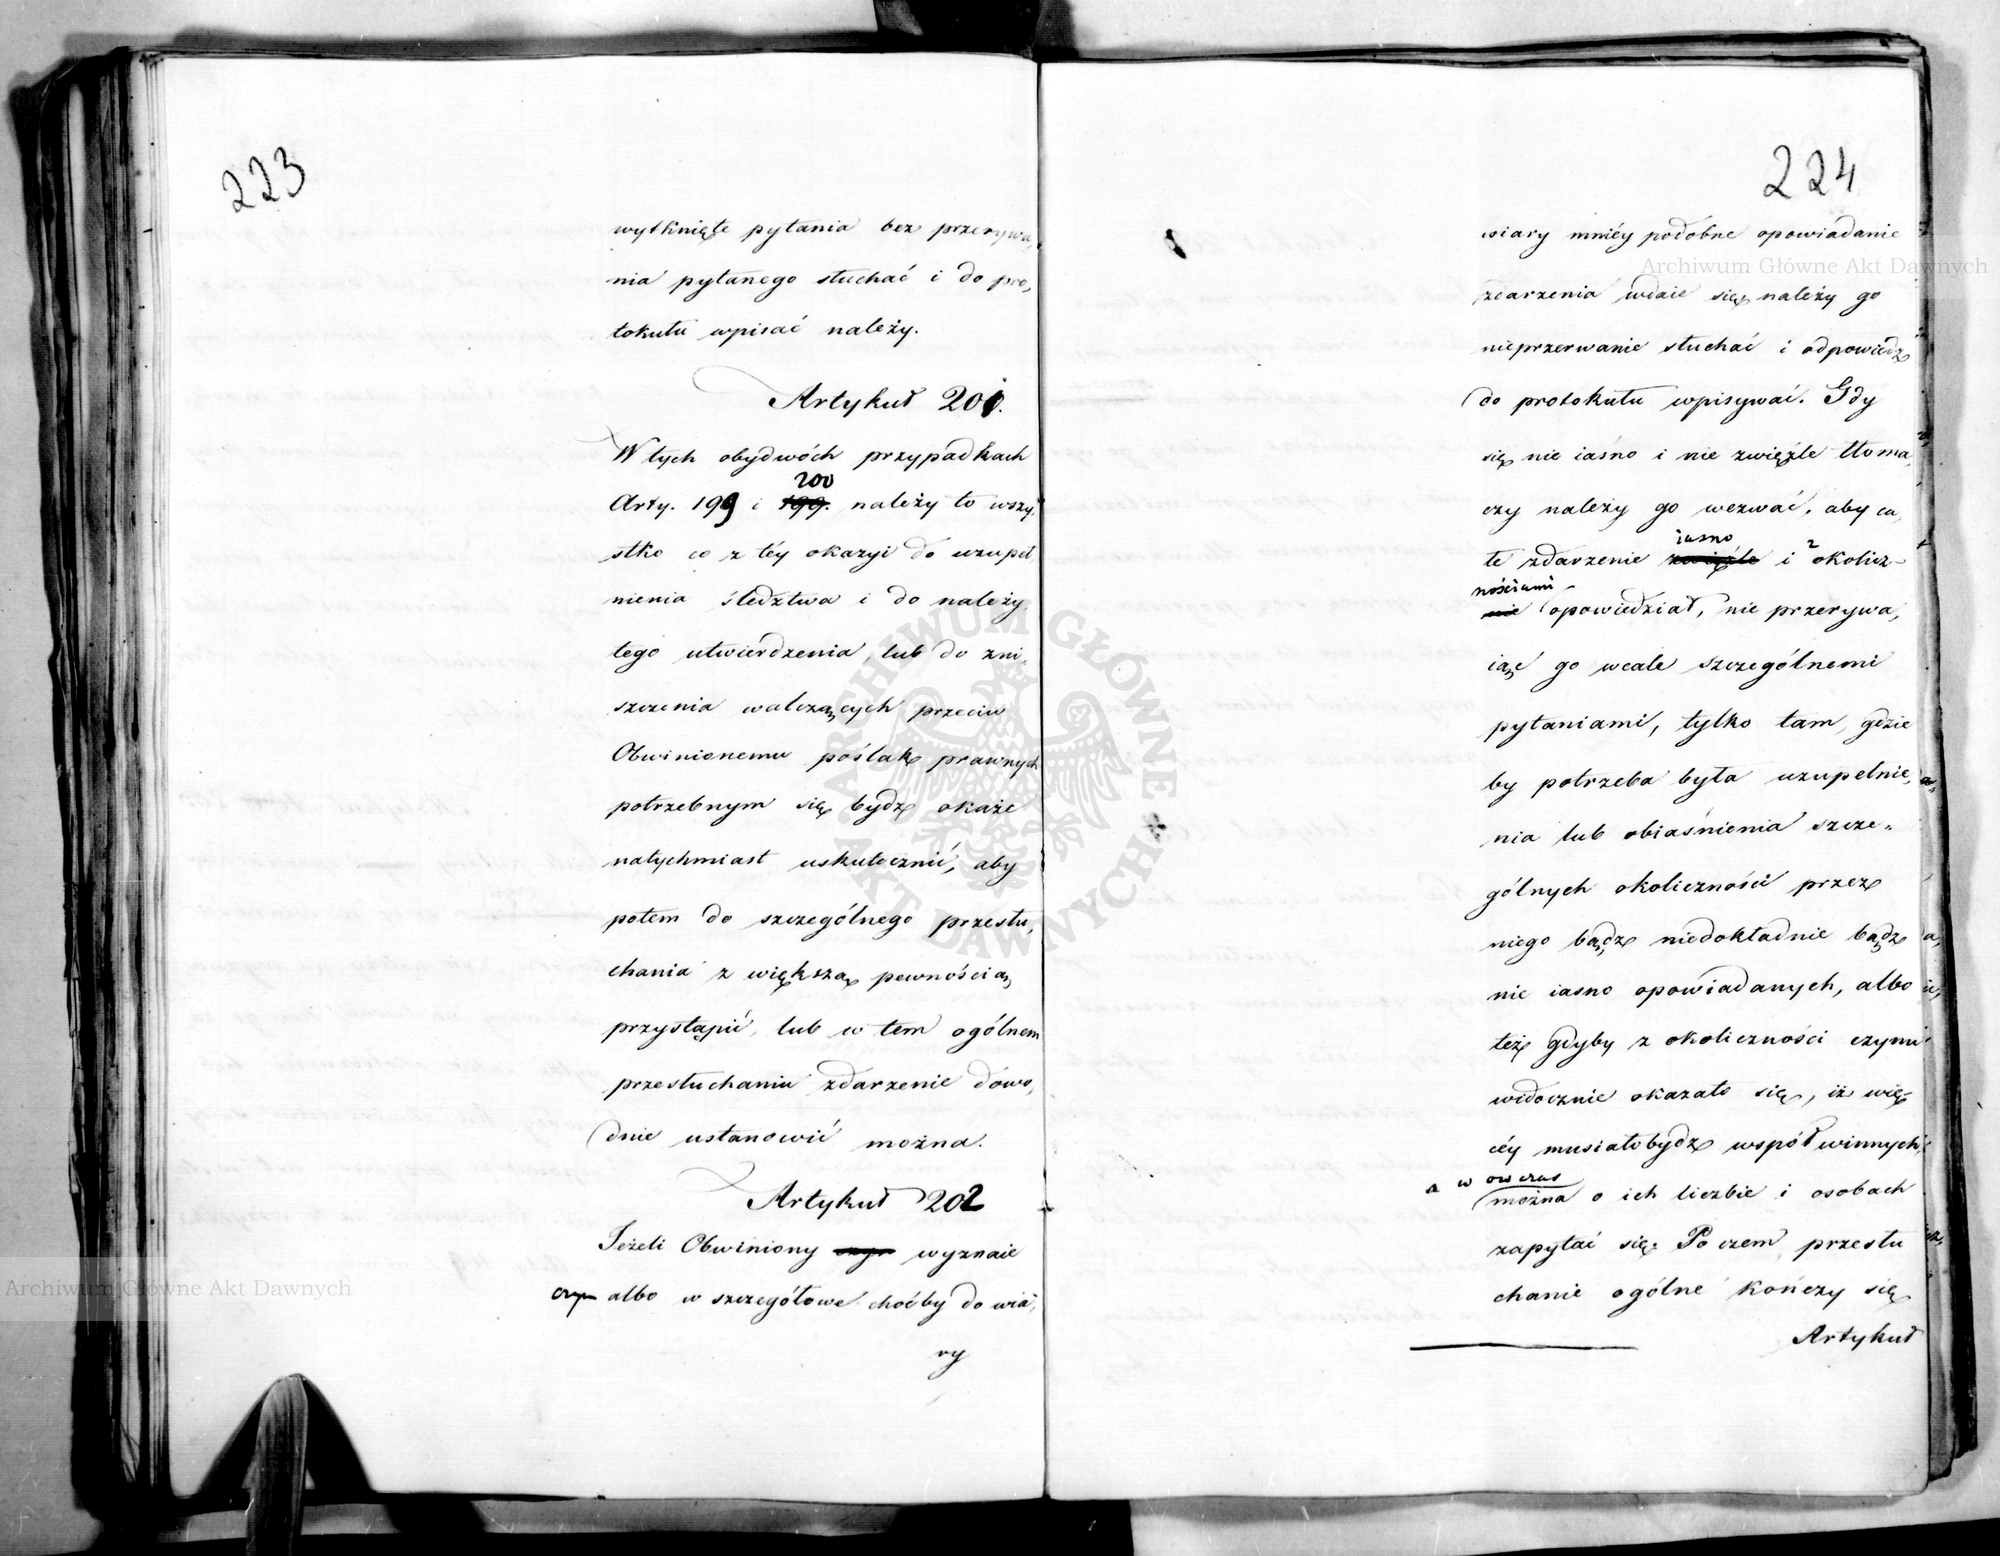 223
wytknięte pytania bez przerywa,
nia pytanego słuchać i do pro,
tokułu wpisać należy.
Artykuł 201.
W tych obydwóch przypadkach
200
Arty. 199 i 199. należy to wszy,
stko co z téy okazyi do uzupeł,
nienia śledztwa i do należy,
tego utwierdzenia, lub do zni,
szczenia walczących przeciw
Obwinionemu poślak prawnych
potrzebnym się bydź okaże
natychmiast uskutecznić, aby
potem do szczególnego przesłu,
chania z większą pewnością
przystąpić, lub w tem ogólnem
przesłuchaniu zdarzenie dowo,
dnie ustanowić można.
Artykuł 202
Jeżeli Obwiniony czyn wyznaie
czyn albo w szczegółowe choćby do wia,
ry
224
wiary mniéy podobne opowiadanie
zdarzenia wdaie się, należy go
nieprzerwanie słuchać i odpowiedź
do protokułu wpisywać. Gdy
się nie iaśno i nie zwięźle tłoma,
czy należy go wezwać, aby ca,
iasno
łe zdarzenie zwięźle i z okolicz-
nościami
nie opowiedział, nie przerywa,
iąc go wcale szczególnemi
pytaniami, tylko tam, gdzie
by potrzeba była uzupełnie,
nia lub obiaśnienia szcze,,
gólnych okoliczności przez
niego bądź niedokładnie bądź
nie iasno opowiadanych, albo
też gdyby z okoliczności czynu
widocznie okazało się, iż wię-
céy musiało bydź współwinnych,
a w ow czas
można o ich liczbie i osobach
zapytać się. Po czem przesłu
chanie ogólne kończy się
Artykuł
Archiwum Główne Akt Dawnych
Archiwum Główne Akt Dawnych
ARCHIWUM GŁÓWNE AKT DAWNYCH